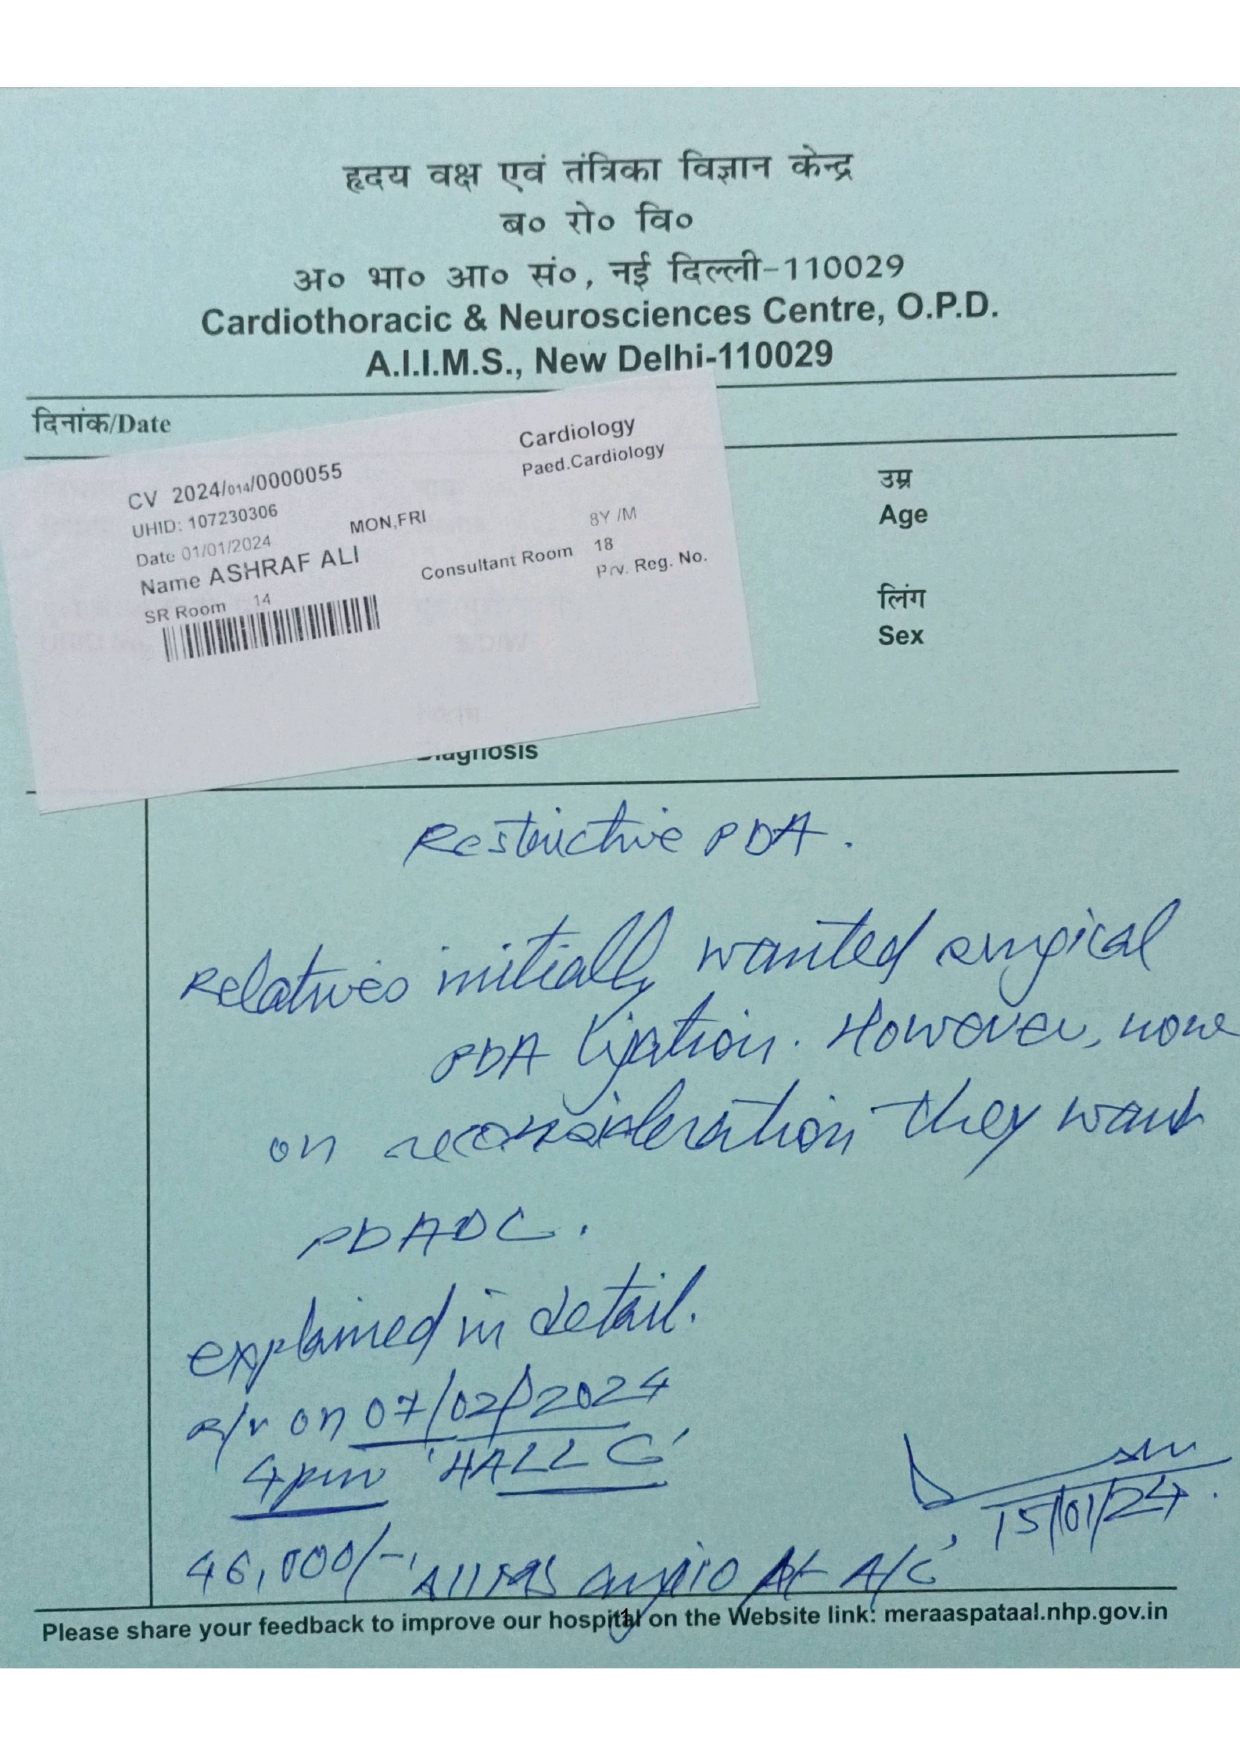 हृदय वक्ष एवं तंत्रिका विज्ञान केन्द्र
ब० रो० वि०
अ० भा० आ० सं०, नई दिल्ली-110029
Cardiothoracic & Neurosciences Centre, O.P.D.
A.I.I.M.S., New Delhi-110029
दिनांक/Date
Cardiology
Paed.Cardiology
CV 2024/014/0000055
UHID: 107230306
Date 01/01/2024 MON,FRI 8Y /M
Name ASHRAF ALI Consultant Room 18
SR Room 14 Prv. Reg. No.
उम्र
Age
लिंग
Sex
Diagnosis
Restrictive PDA.
Relatives initially wanted surgical
PDA ligation. However, now
on reconsideration they want
PDADC.
explained in detail.
r/v on 07/02/2024
4pm 'HALL G'
15/01/24.
46,000/- 'AIIMS angio Pt A/C'
Please share your feedback to improve our hospital on the Website link: meraaspataal.nhp.gov.in
1